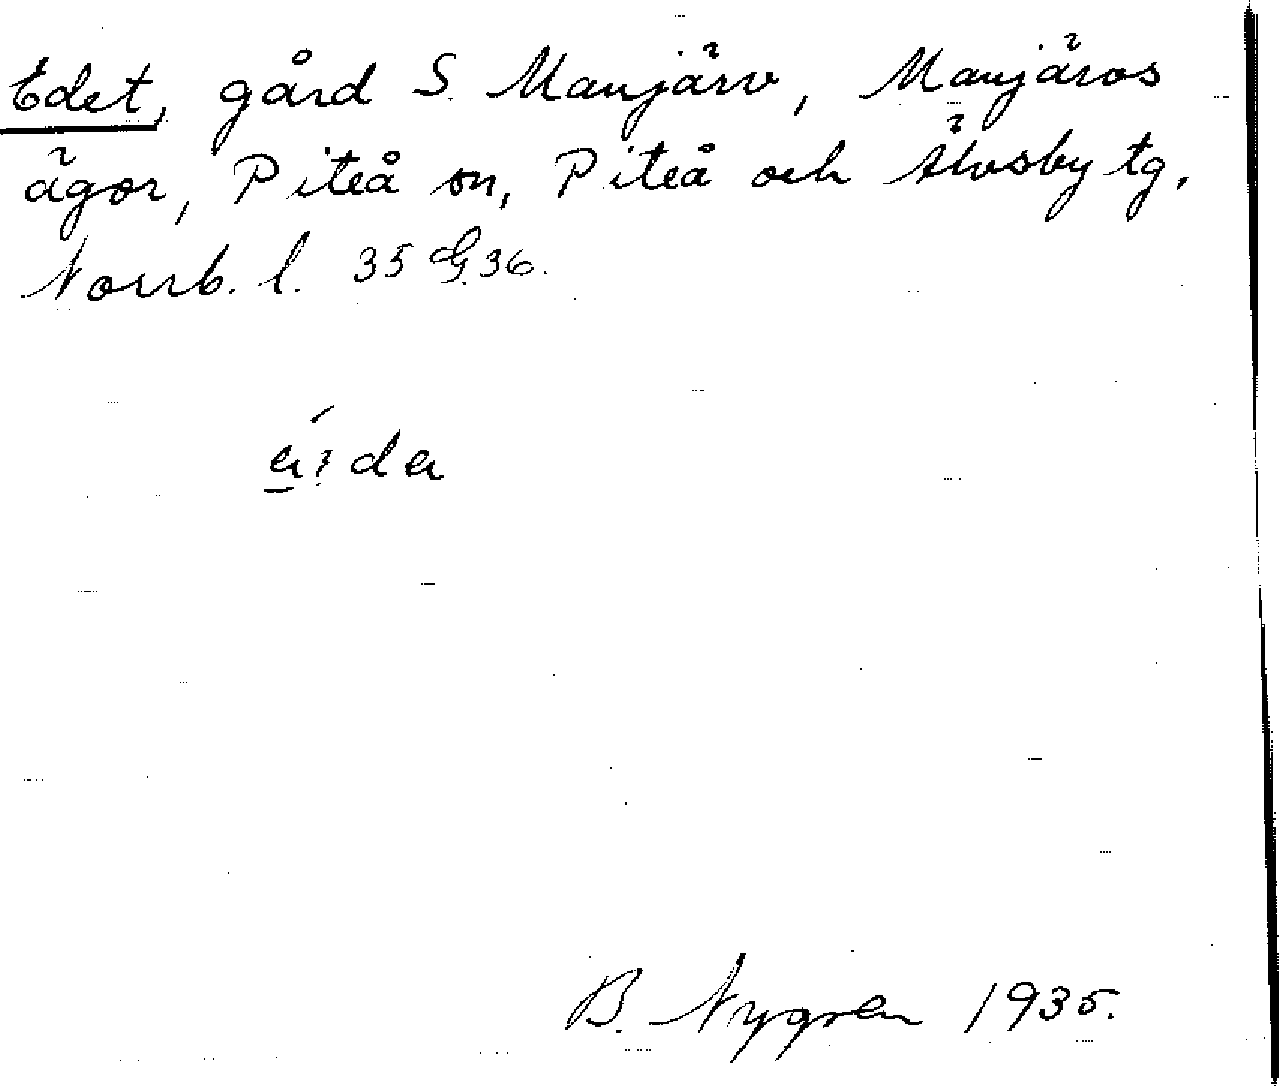 Edet, gård S. Manjärv, Manjärvs
ägor, Piteå sn, Piteå och Älvsby tg,
Norrb. l. 35 G. 36.
B. Nygren 1935.